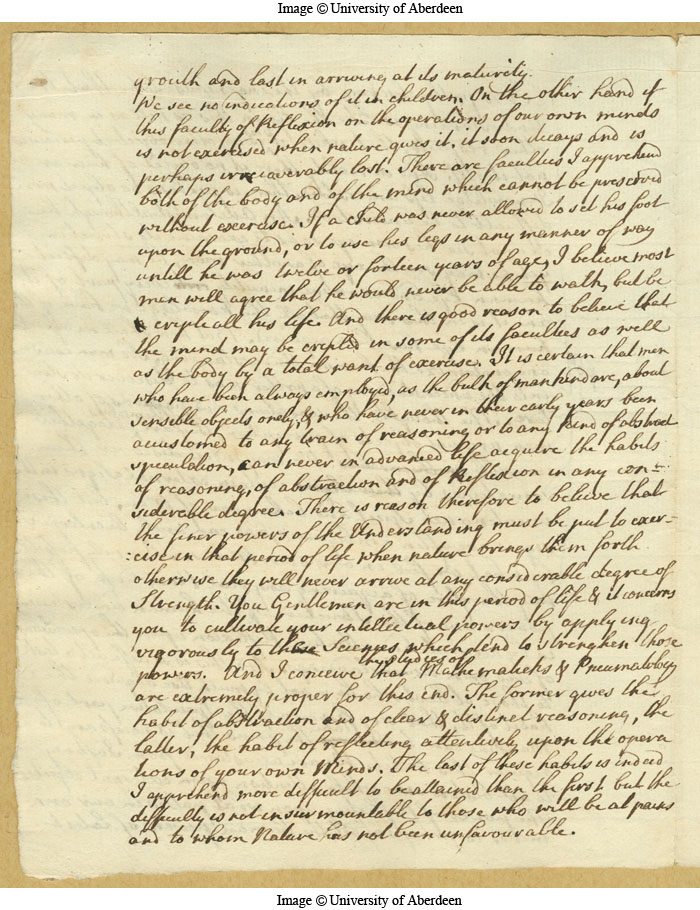 Image © University of Aberdeen
grouth and last in arriving at its maturity.
We see no indications of it in children. On the other hand if
this faculty of Reflexion on the operations of our own minds
is not exercised when nature gives it, it soon decays and is
perhaps irrecoverably lost. There are faculties I apprehend
both of the body and of the mind which cannot be preserved
without exercise. If a child was never allowed to set his foot
upon the ground, or to use his legs in any manner of way
untill he was twelve or forteen years of age, I believe most
men will agree that he would never be able to walk, but be
criple all his life. And there is good reason to believe that
the mind may be cripled in some of its faculties as well
as the body by a total want of exercise. It is certain that men
who have been always employed, as the bulk of mankind are, about
sensible objects onely, & who have never in their early years been
accustomed to any train of reasoning or to any kind of abstract
speculation, can never in advanced life acquire the habits
of reasoning, of abstraction and of Reflexion in any con-
siderable degree. There is reason therefore to believe that
the finer powers of the Understanding must be put to exer-
:cise in that period of life when nature brings them forth
otherwise they will never arrive at any considerable degree of
Strength. You Gentlemen are in this period of life & it concerns
you to cultivate your intellectual powers by applying
vigorously to those Sciences which tend to strengthen those
the studies of
powers. And I conceive that Mathematicks & Pneumatology
are extremely proper for this end. The former gives the
habit of abstraction and of clear & distinct reasoning, the
latter, the habit of reflecting attentively upon the opera
tions of your own Minds. The last of these habits is indeed
I apprehend more difficult to be attained than the first but the
difficulty is not insurmountable to those who will be at pains
and to whom Nature has not been unfavourable.
Image © University of Aberdeen